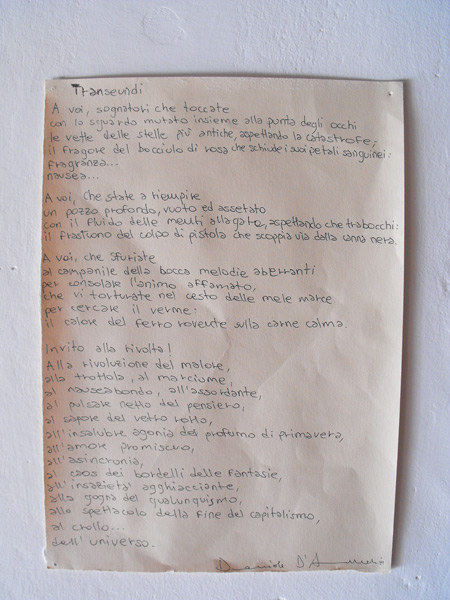 Transeundi
A voi, sognatori che toccate
con lo sguardo mutato insieme alla punta degli occhi
le vette delle stelle più antiche, aspettando la catastrofe;
il fragore del bocciolo di rosa che schiude i suoi petali sanguinei:
fragranza...
nausea...
A voi, che state a riempire
un pozzo profondo, vuoto ed assetato
con il fluido delle menti allagate, aspettando che trabocchi:
il frastuono del colpo di pistola che scoppia via dalla canna nera.
A voi, che sfuriate
al campanile della bocca melodie aberranti
per consolare l'animo affamato,
che vi torturate nel cesto delle mele marce
per cercare il verme:
il calore del ferro rovente sulla carne calma.
Invito alla rivolta!
Alla rivoluzione del malore,
alla trottola, al marciume,
al nauseabondo, all'assordante,
al pulsare netto del pensiero,
al sapore del vetro rotto,
all'insalubre agonia del profumo di primavera,
all'amore promiscuo,
all'asincronia,
al caos dei bordelli delle fantasie,
all'insazietà agghiacciante,
alla gogna del qualunquismo,
allo spettacolo della fine del capitalismo,
al crollo...
dell'universo.